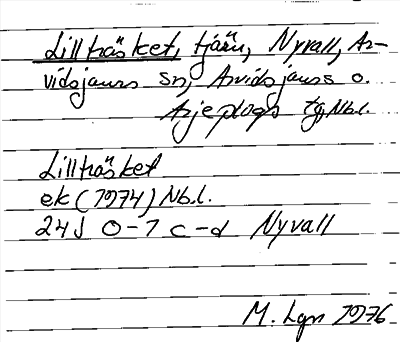 Lillträsket, tjärn, Nyvall, Ar-
vidsjaurs sn, Arvidsjaurs o.
Arjeplogs tg, Nbl.
Lillträsket
ek (1974) Nb.l.
24J 0-1 c-d Nyvall
M. Lgn 1976